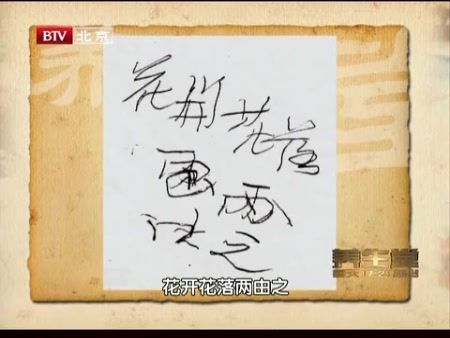 BTV 北京
花開花落
两
之
养生堂
花开花落两由之